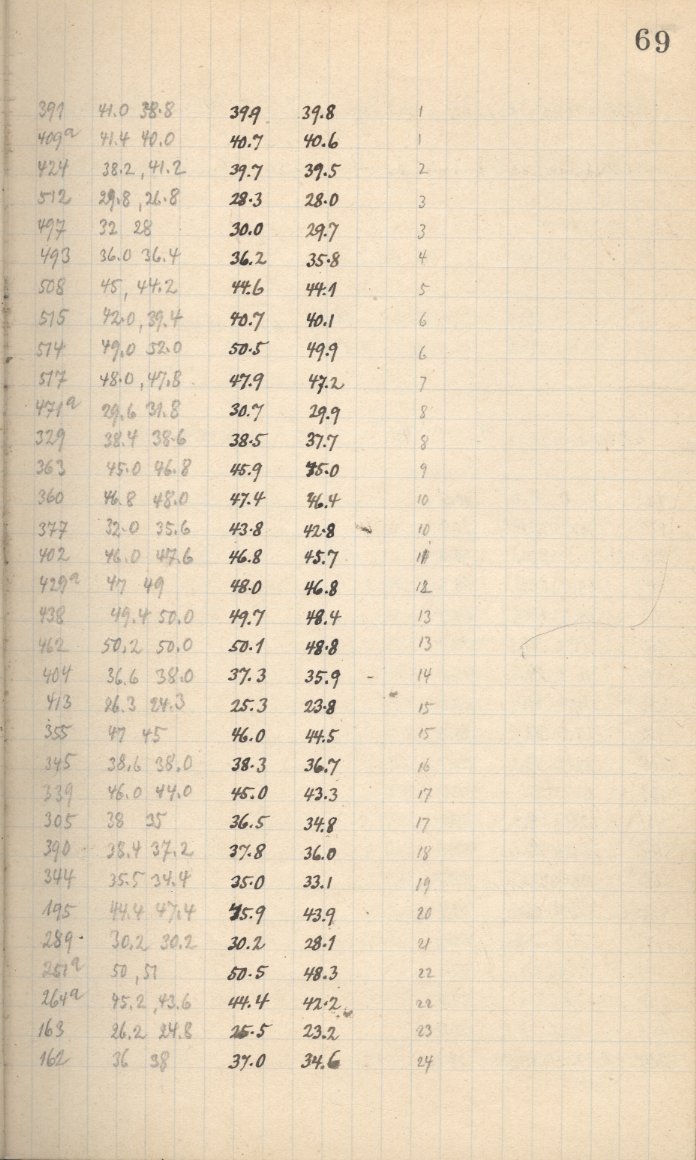 69
391 41.0 38.8 39.9 39.8 1
409a 41.4 40.0 40.7 40.6 1
424 38.2, 41.2 39.7 39.5 2
512 29.8, 26.8 28.3 28.0 3
497 32 28 30.0 29.7 3
493 36.0 36.4 36.2 35.8 4
508 45, 44.2 44.6 44.1 5
515 42.0, 39.4 40.7 40.1 6
514 49.0 52.0 50.5 49.9 6
517 48.0, 47.8 47.9 47.2 7
471a 29.6 31.8 30.7 29.9 8
329 38.4 38.6 38.5 37.7 8
363 45.0 46.8 45.9 45.0 9
360 46.8 48.0 47.4 46.4 10
377 32.0 35.6 43.8 42.8 10
402 46.0 47.6 46.8 45.7 11
429a 47 49 48.0 46.8 12
438 49.4 50.0 49.7 48.4 13
462 50.2 50.0 50.1 48.8 13
404 36.6 38.0 37.3 35.9 - 14
413 26.3 24.3 25.3 23.8 15
355 47 45 46.0 44.5 15
345 38.6 38.0 38.3 36.7 16
339 46.0 44.0 45.0 43.3 17
305 38 35 36.5 34.8 17
390 38.4 37.2 37.8 36.0 18
344 35.5 34.4 35.0 33.1 19
195 44.4 47.4 45.9 43.9 20
289 30.2 30.2 30.2 28.1 21
251a 50, 51 50.5 48.3 22
264a 45.2, 43.6 44.4 42.2 22
163 26.2 24.8 25.5 23.2 23
162 36 38 37.0 34.6 24